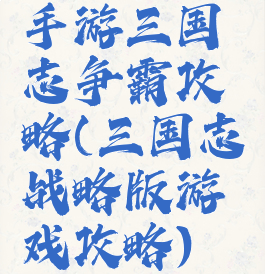 手游三国
志争霸攻
略(三国志
战略版游
戏攻略)